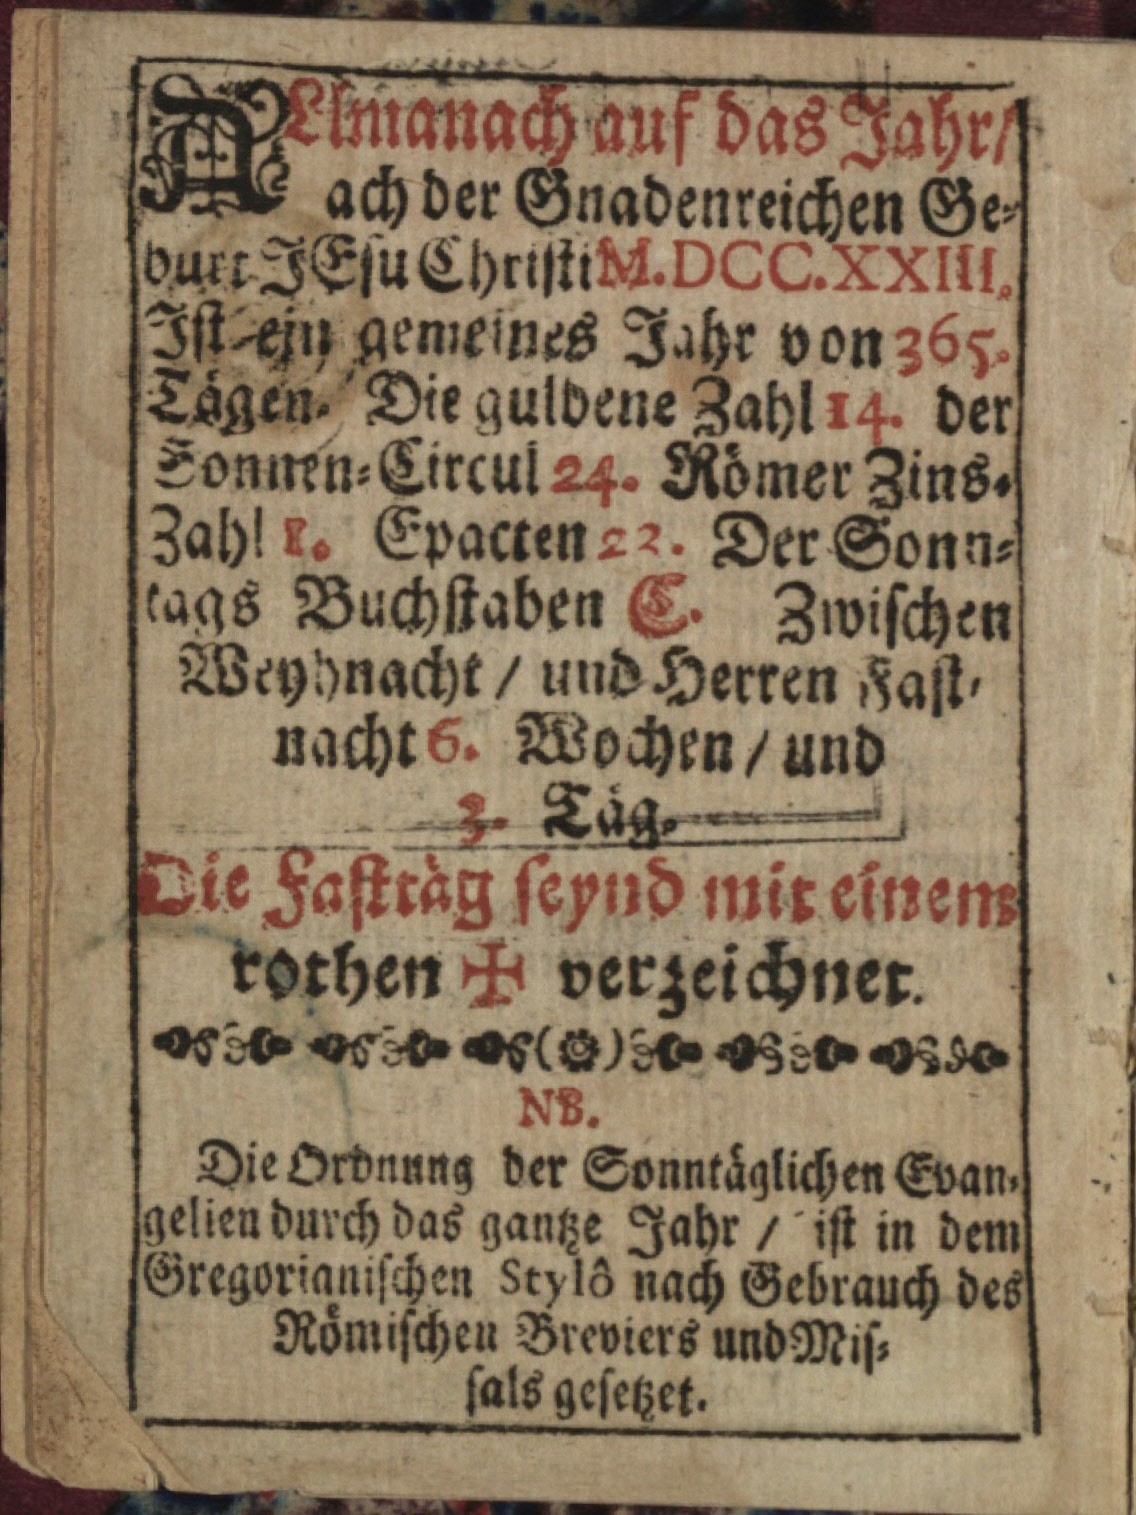 ALlmanach auf das Jahr/
ach der Gnadenreichen Ge-
burt JEsu Christi M.DCC.XXIII.
Ist ein gemeines Jahr von 365.
Tägen. Die guldene Zahl 14. der
Sonnen-Circul 24. Römer Zins-
Zahl 1. Epacten 22. Der Sonn-
tags Buchstaben C. Zwischen
Weyhnacht / und Herren Fast-
nacht 6. Wochen / und
3. Täg.
Die Fasttäg seynd mit einem
rothen ✠ verzeichnet.
NB.
Die Ordnung der Sonntäglichen Evan-
gelien durch das gantze Jahr / ist in dem
Gregorianischen Stylô nach Gebrauch des
Römischen Breviers und Mis-
sals gesetzet.